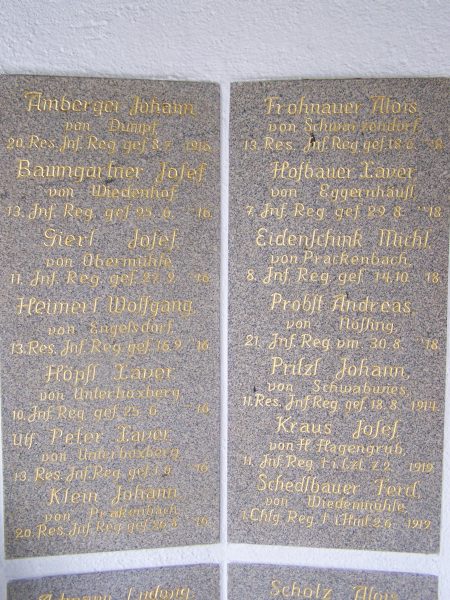 Amberger Johann
von Dumpf,
20. Res. Inf. Reg. gef. 8. 7. 1916.
Baumgartner Josef
von Wiedenhof
13. Inf. Reg. gef. 25. 6. "16.
Gierl Josef
von Obermühle,
11. Inf. Reg. gef. 27. 9. "16.
Heimerl Wolfgang,
von Engelsdorf,
13. Res. Inf. Reg. gef. 16. 9. "16.
Höpfl Xaver
von Unterhoxberg,
10. Inf. Reg. gef. 25. 6. "16.
Utf. Peter Xaver,
von Unterhoxberg
13. Res. Inf. Reg. gef. "16.
Klein Johann,
von Prakenbach,
20. Res. Inf. Reg. gef. 26. 8. "16.
Frohnauer Alois,
von Schwarzendorf,
13. Res. Inf. Reg. gef. 18. 6. "18.
Hofbauer Xaver
von Eggernhäusl
7. Inf. Reg. gef. 29. 8. "18.
Eidenschink Michl,
von Prackenbach,
8. Inf. Reg. gef. 14. 10. "18.
Probst Andreas
von Mössing,
21. Inf. Reg. vm. 30. 8. "18.
Pritzl Johann,
von
11. Res. Inf. Reg. gef. 18. 8. 1914.
Kraus Josef,
von H. Hagengrub,
11. Inf. Reg. f. i. Lzt. 7. 2. 1919.
Schedlbauer Ferd.
von Wiedenmühle,
1. Chlg. Reg. f. i. 2. 6. 1919.
Ludwig
Scholz Alois